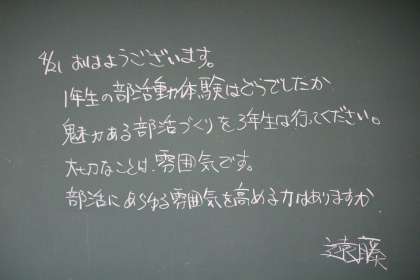 4/21 おはようございます。
1年生の部活動体験はどうでしたか
魅力ある部活づくりを3年生は行ってください。
大切なことは、雰囲気です。
部活にあらゆる雰囲気を高める力はありますか
遠藤